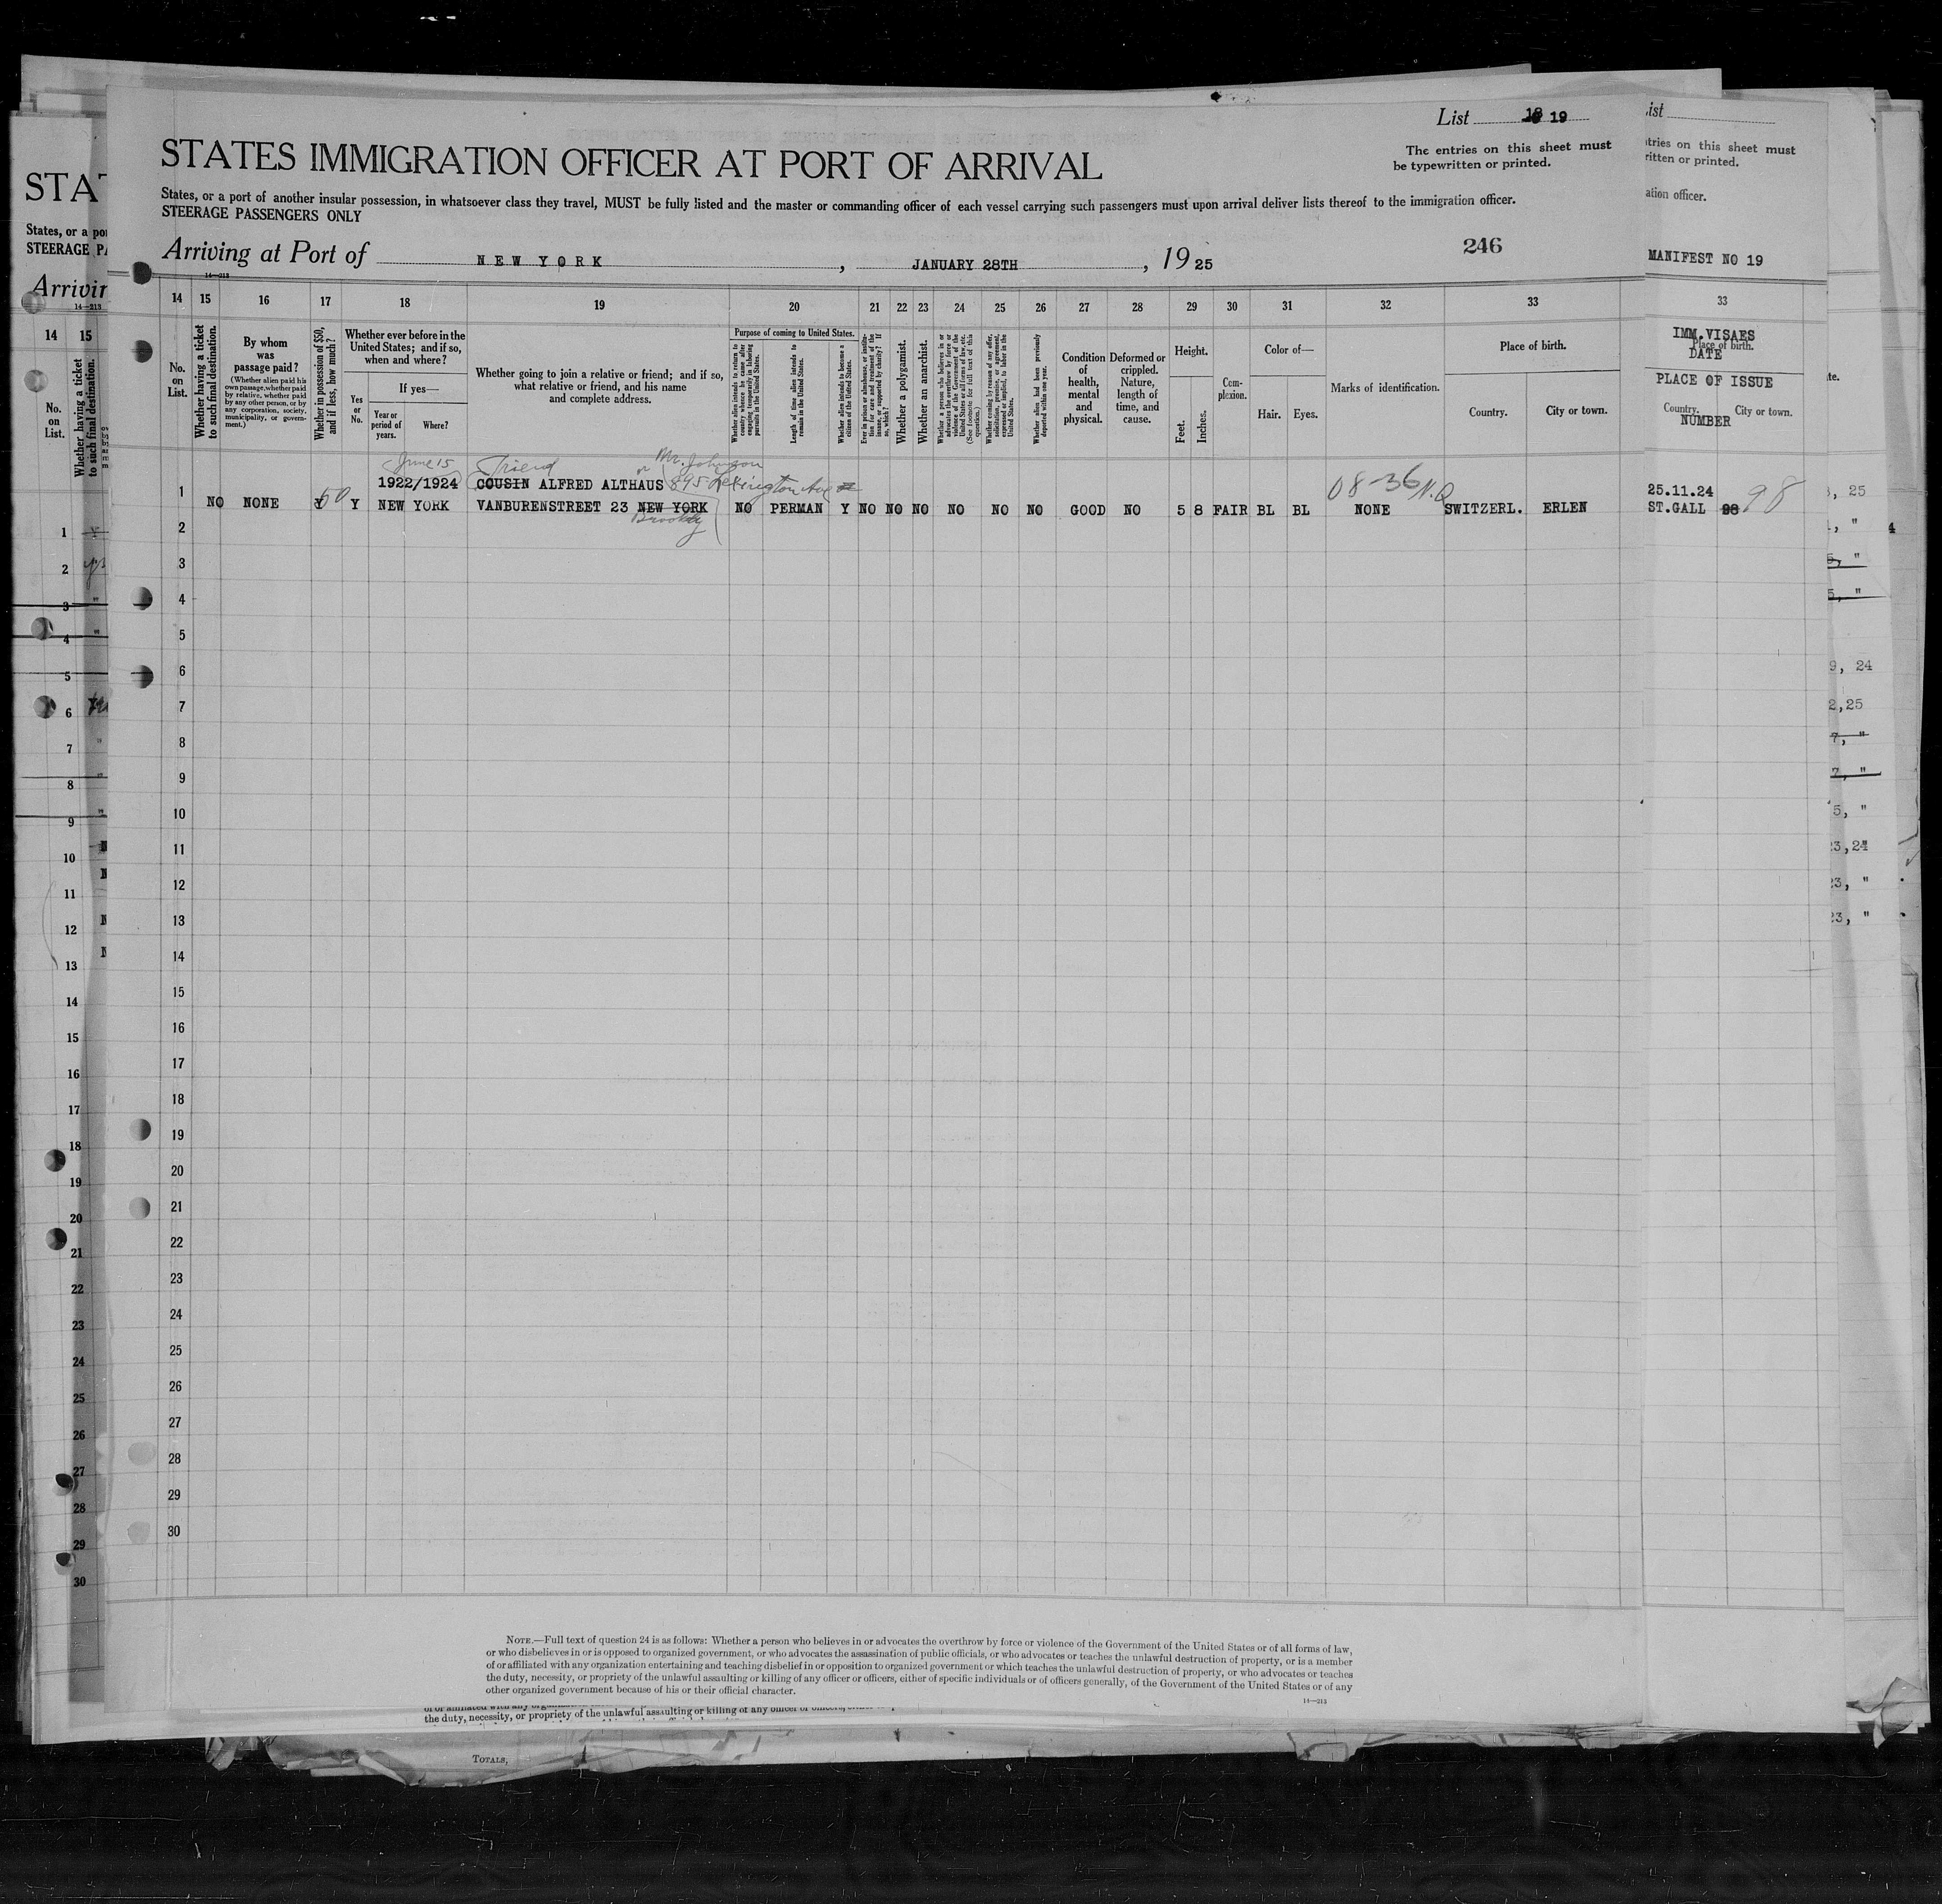 List 18 19
The entries on this sheet must
be typewritten or printed.
STATES IMMIGRATION OFFICER AT PORT OF ARRIVAL
States, or a port of another insular possession, in whatsoever class they travel, MUST be fully listed and the master or commanding officer of each vessel carrying such passengers must upon arrival deliver lists thereof to the immigration officer.
STEERAGE PASSENGERS ONLY
Arriving at Port of NEW YORK, JANUARY 28TH, 1925
246
14—213
14 15 16 17 18 19 20 21 22 23 24 25 26 27 28 29 30 31 32 33
No. on List.
Whether having a ticket to such final destination.
By whom was passage paid?
(Whether alien paid his own passage, whether paid by relative, whether paid by any other person, or by any corporation, society, municipality, or government.)
Whether in possession of $50, and if less, how much?
Whether ever before in the United States; and if so, when and where?
Yes or No.
If yes—
Year or period of years.
Where?
Whether going to join a relative or friend; and if so, what relative or friend, and his name and complete address.
Purpose of coming to United States.
Whether alien intends to return to country whence he came after engaging temporarily in laboring pursuits in the United States.
Length of time alien intends to remain in the United States.
Whether alien intends to become a citizen of the United States.
Ever in prison or almshouse, or institution for care and treatment of the insane, or supported by charity? If so, which?
Whether a polygamist.
Whether an anarchist.
Whether a person who believes in or advocates the overthrow by force or violence of the Government of the United States or all forms of law, etc. (See footnote for full text of this question.)
Whether coming by reason of any offer, solicitation, promise, or agreement, expressed or implied, to labor in the United States.
Whether alien had been previously deported within one year.
Condition of health, mental and physical.
Deformed or crippled. Nature, length of time, and cause.
Height.
Feet.
Inches.
Complexion.
Color of—
Hair.
Eyes.
Marks of identification.
Place of birth.
Country.
City or town.
June 15 Friend or Mr. Johnson
1922/1924 COUSIN ALFRED ALTHAUS 895 Lexington Ave 08-36 N.Q
1 NO NONE Y 50 Y NEW YORK VANBURENSTREET 23 NEW YORK NO PERMAN Y NO NO NO NO NO NO GOOD NO 5 8 FAIR BL BL NONE SWITZERL. ERLEN
Brooklyn
2
3
4
5
6
7
8
9
10
11
12
13
14
15
16
17
18
19
20
21
22
23
24
25
26
27
28
29
30
NOTE.—Full text of question 24 is as follows: Whether a person who believes in or advocates the overthrow by force or violence of the Government of the United States or of all forms of law,
or who disbelieves in or is opposed to organized government, or who advocates the assassination of public officials, or who advocates or teaches the unlawful destruction of property, or is a member
of or affiliated with any organization entertaining and teaching disbelief in or opposition to organized government or which teaches the unlawful destruction of property, or who advocates or teaches
the duty, necessity, or propriety of the unlawful assaulting or killing of any officer or officers, either of specific individuals or of officers generally, of the Government of the United States or of any
other organized government because of his or their official character.
14—213
the duty, necessity, or propriety of the unlawful assaulting or killing of any officer or officers,
TOTALS,
ist
tries on this sheet must
ritten or printed.
ation officer.
MANIFEST NO 19
33
IMM.VISAES
Place of birth.
DATE
PLACE OF ISSUE
Country.
City or town.
NUMBER
25.11.24
ST.GALL 98 98
, 25
, "
4
5, "
5, "
9, 24
2,25
7, "
7, "
5, "
3,24
23, "
23, "
STAT
States, or a po
STEERAGE PA
Arrivin
14—213
14 15
No. on List.
Whether having a ticket to such final destination.
1
2
3
4
5
6
7
8
9
10
11
12
13
14
15
16
17
18
19
20
21
22
23
24
25
26
27
28
29
30